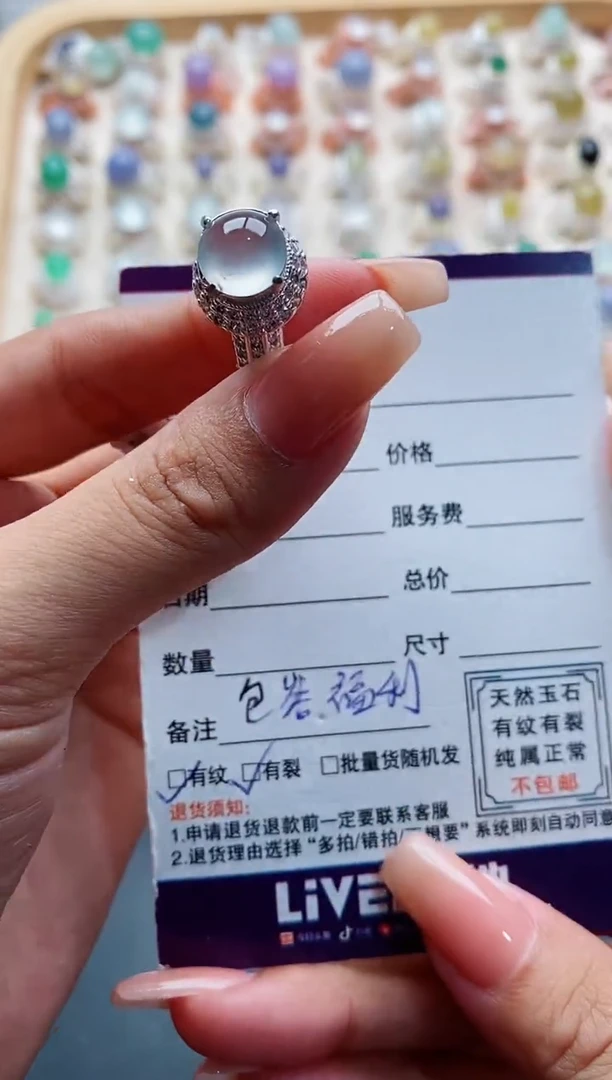 价格
服务费
日期
总价
数量
尺寸
备注 包岩.福利
天然玉石
有纹有裂
纯属正常
不包邮
☑有纹 ☑有裂 □批量货随机发
退货须知:
1.申请退货退款前一定要联系客服
2.退货理由选择“多拍/错拍/不想要”系统即刻自动同意
LiVE